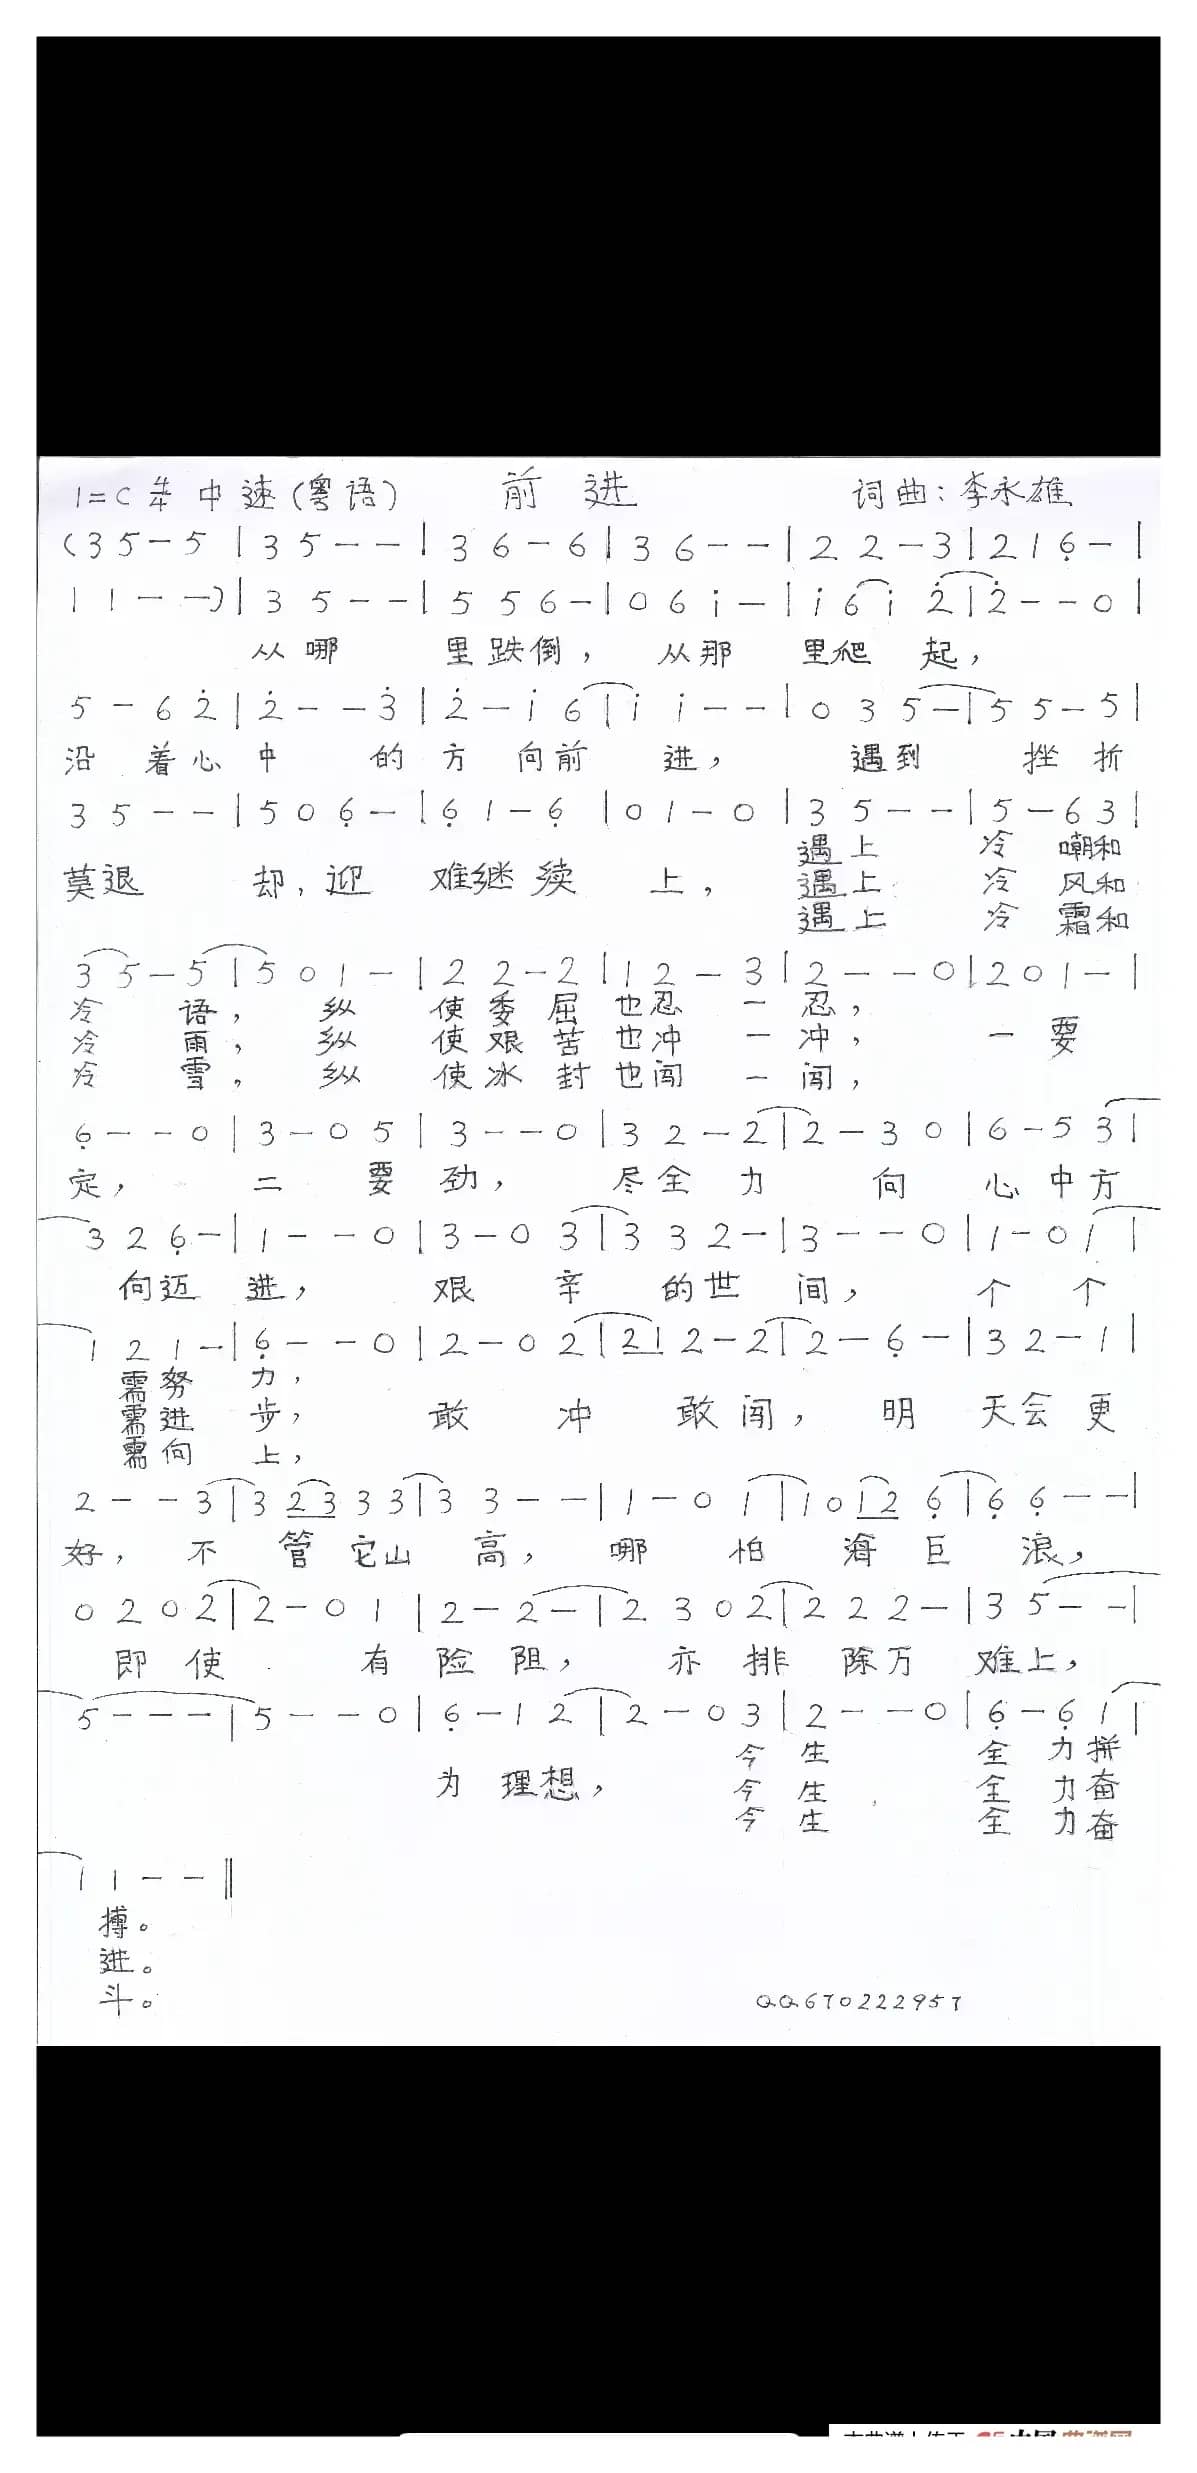 1=C 4/4 中速(粤语) 前进 词曲:李永雄
(3 5 - 5 | 3 5 - - | 3 6 - 6 | 3 6 - - | 2 2 - 3 | 2 1 6̣ - |
1 1 - -) | 3 5 - - | 5 5 6 - | 0 6 i - | i 6 i 2̇ | 2̇ - - 0 |
从哪 里跌倒, 从那 里爬 起,
5 - 6 2̇ | 2̇ - - 3̇ | 2̇ - i 6 | i i - - | 0 3 5 - | 5 5 - 5 |
沿 着心中 的方 向前 进, 遇到 挫折
3 5 - - | 5 0 6̣ - | 6̣ 1 - 6̣ | 0 1 - 0 | 3 5 - - | 5 - 6 3 |
遇上 冷 嘲和
莫退 却,迎 难继续 上, 遇上 冷 风和
遇上 冷 霜和
3 5 - 5 | 5 0 1 - | 2 2 - 2 | 1 2 - 3 | 2 - - 0 | 2 0 1 - |
冷 语, 纵 使委屈也忍 一忍,
冷 雨, 纵 使艰苦也冲 一冲, 一要
冷 雪, 纵 使冰封也闯 一闯,
6̣ - - 0 | 3 - 0 5 | 3 - - 0 | 3 2 - 2 | 2 - 3 0 | 6 - 5 3 |
定, 二 要劲, 尽全力 向 心中方
3 2 6̣ - | 1 - - 0 | 3 - 0 3 | 3 3 2 - | 3 - - 0 | 1 - 0 1 |
向迈 进, 艰 辛 的世 间, 个 个
1 2 1 - | 6̣ - - 0 | 2 - 0 2 | 2 1 2 - 2 | 2 - 6̣ - | 3 2 - 1 |
需努 力,
需进 步, 敢 冲 敢闯, 明 天会更
需向 上,
2 - - 3 | 3 2 3 3 3 | 3 3 - - | 1 - 0 1 | 1 0 1 2 6̣ | 6̣ 6̣ - - |
好, 不 管它山 高, 哪 怕 海巨 浪,
0 2 0 2 | 2 - 0 1 | 2 - 2 - | 2 3 0 2 | 2 2 2 - | 3 5 - - |
即使 有 险阻, 亦排 除万 难上,
5 - - - | 5 - - 0 | 6̣ - 1 2 | 2 - 0 3 | 2 - - 0 | 6̣ - 6̣ 1 |
今 生 全 力拼
为 理想, 今 生 全 力奋
今 生 全 力奋
1 1 - - ‖
搏。
进。
斗。
QQ670222957